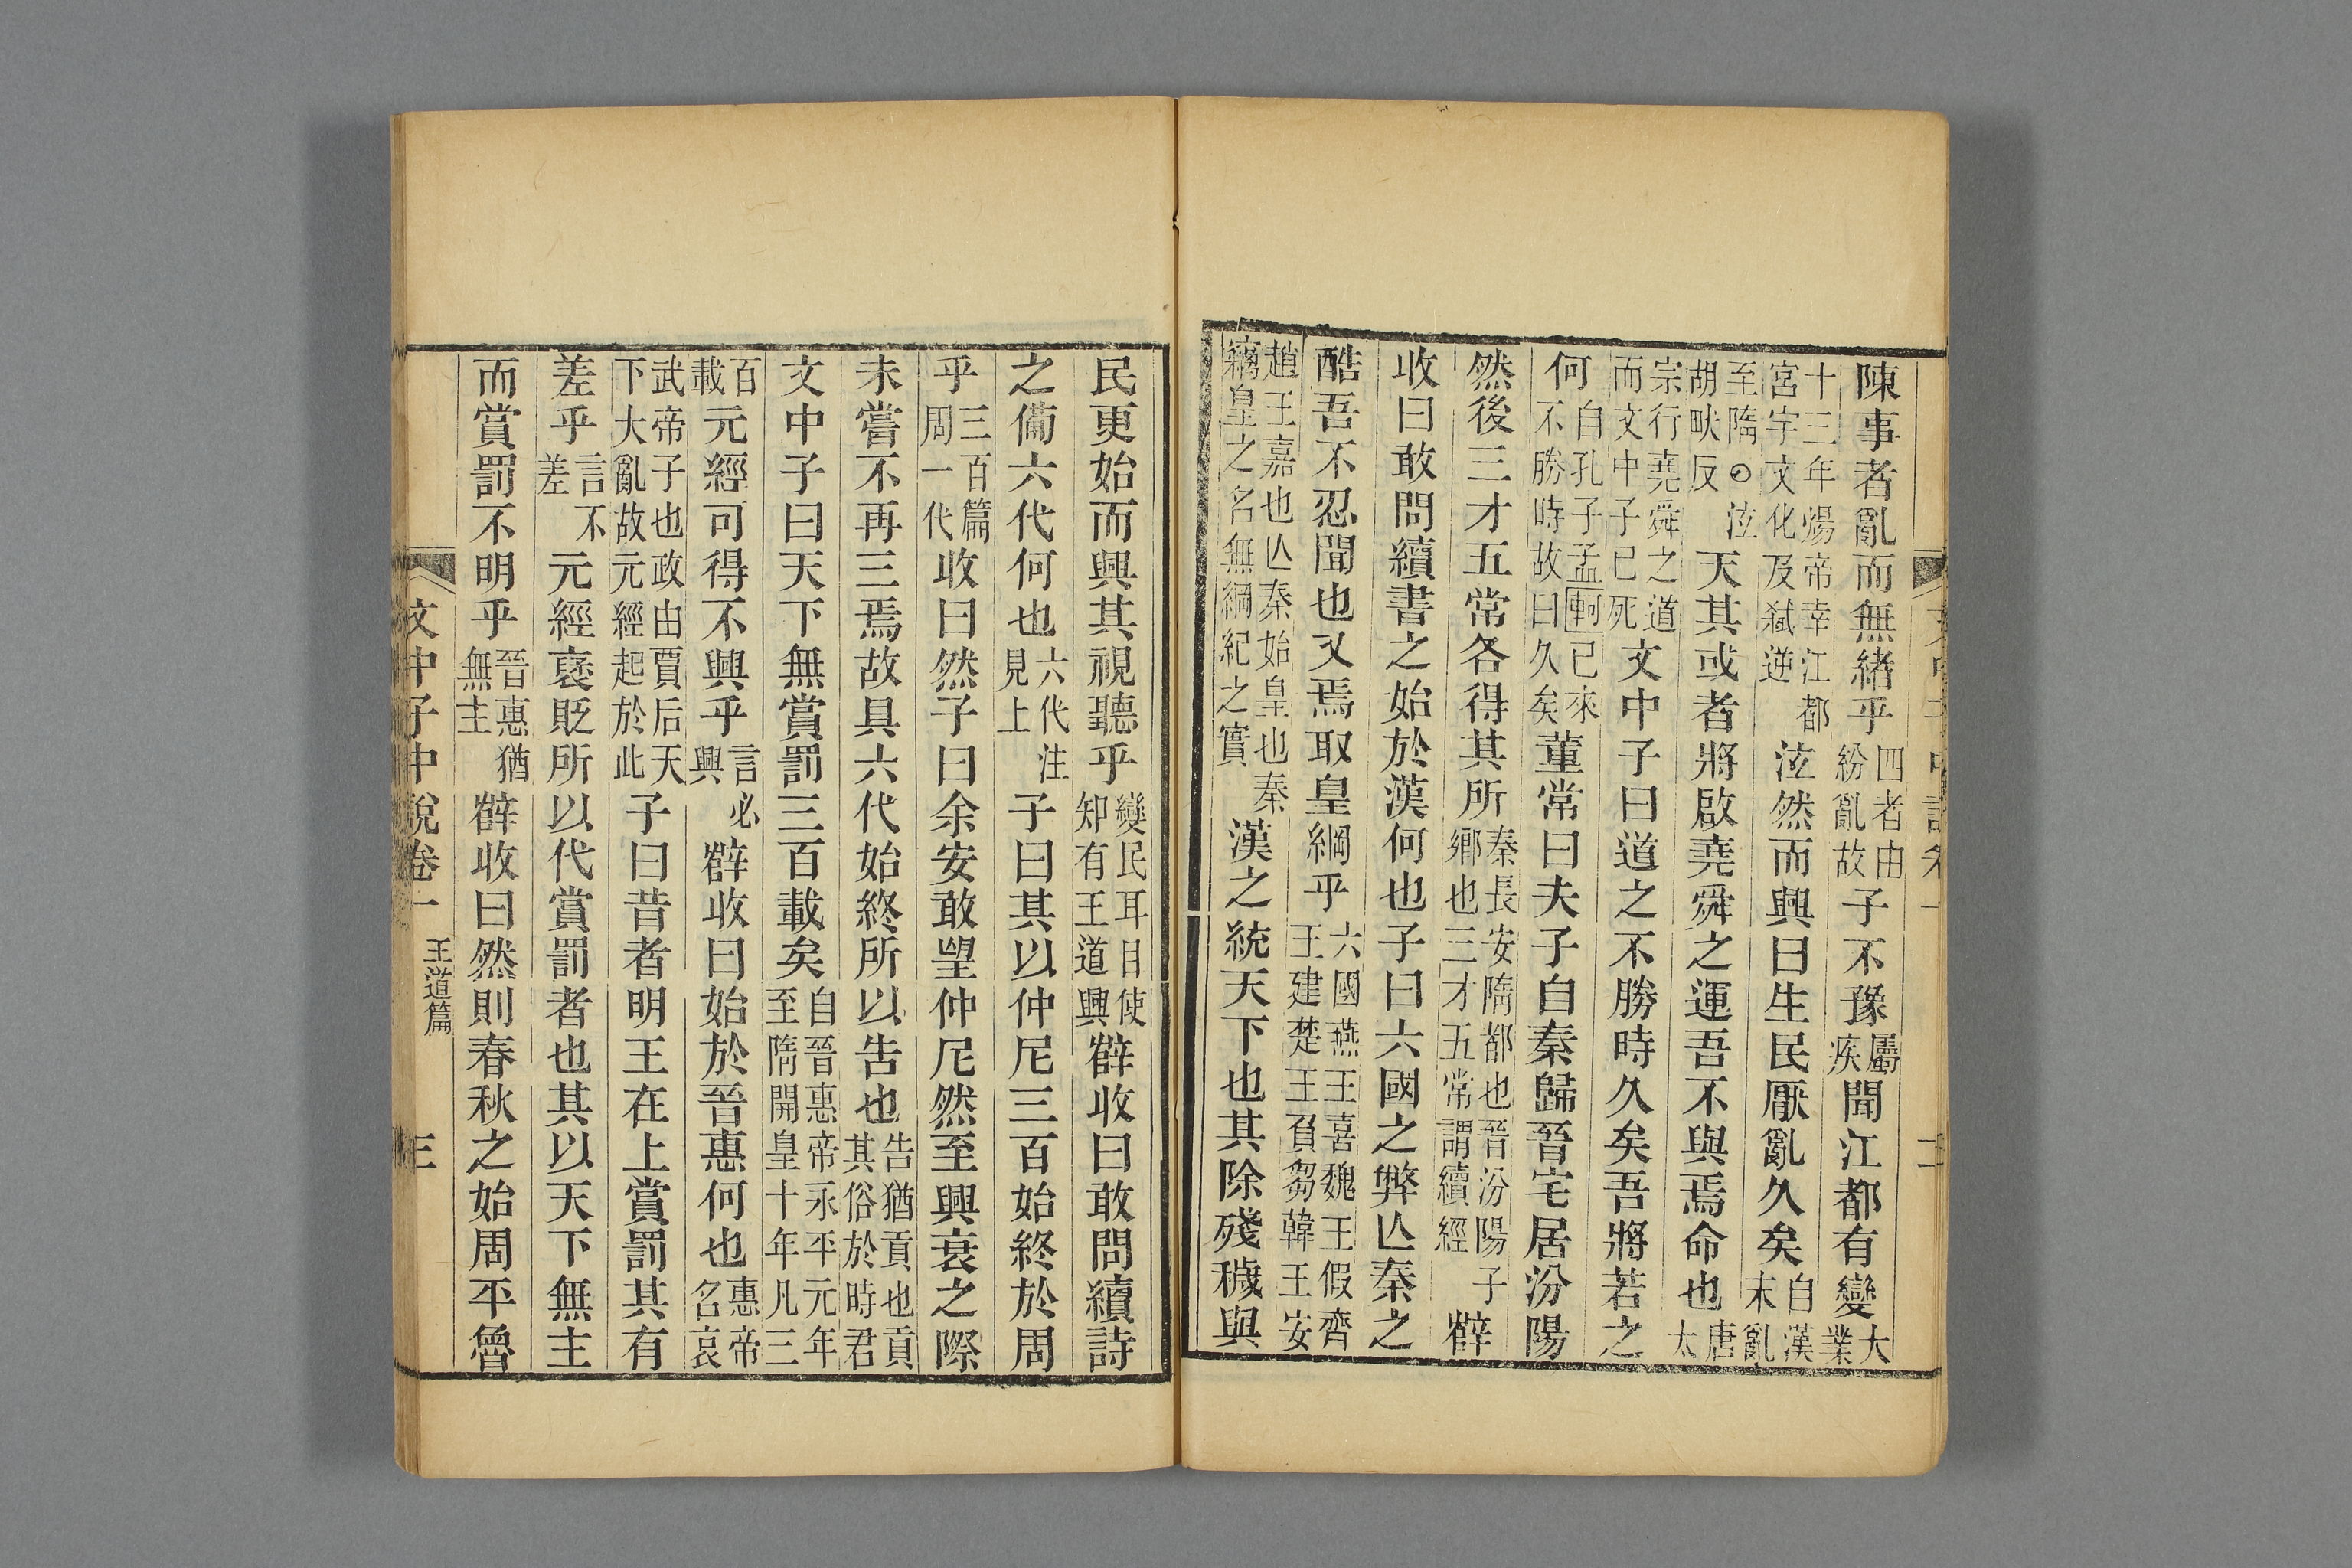 陳事者亂而無緒乎四者由紛亂故子不豫屬疾聞江都有變大業
十三年煬帝幸江都宮宇文化及弑逆泫然而興曰生民厭亂久矣自漢末亂
至隋○泫胡畎反天其或者將啟堯舜之運吾不與焉命也唐太
宗行堯舜之道而文中子已死文中子曰道之不勝時久矣吾將若之
何自孔子孟軻已來不勝時故曰久矣董常曰夫子自秦歸晉宅居汾陽
然後三才五常各得其所秦長安隋都也晉汾陽子鄉也三才五常謂續經薛
收曰敢問續書之始於漢何也子曰六國之弊亾秦之
酷吾不忍聞也又焉取皇綱乎六國燕王喜魏王假齊王建楚王負芻韓王安
趙王嘉也亾秦始皇也秦竊皇之名無綱紀之實漢之統天下也其除殘穢與
民更始而興其視聽乎變民耳目使知有王道興薛收曰敢問續詩
之備六代何也六代注見上子曰其以仲尼三百始終於周
乎三百篇周一代收曰然子曰余安敢望仲尼然至興衰之際
未嘗不再三焉故具六代始終所以告也告猶貢也貢其俗於時君
文中子曰天下無賞罰三百載矣自晉惠帝永平元年至隋開皇十年凡三
百載元經可得不興乎言必興薛收曰始於晉惠何也惠帝名哀
武帝子也政由賈后天下大亂故元經起於此子曰昔者明王在上賞罰其有
差乎言不差元經褒貶所以代賞罰者也其以天下無主
而賞罰不明乎晉惠猶無主薛收曰然則春秋之始周平魯
文中子中說卷一 王道篇 三